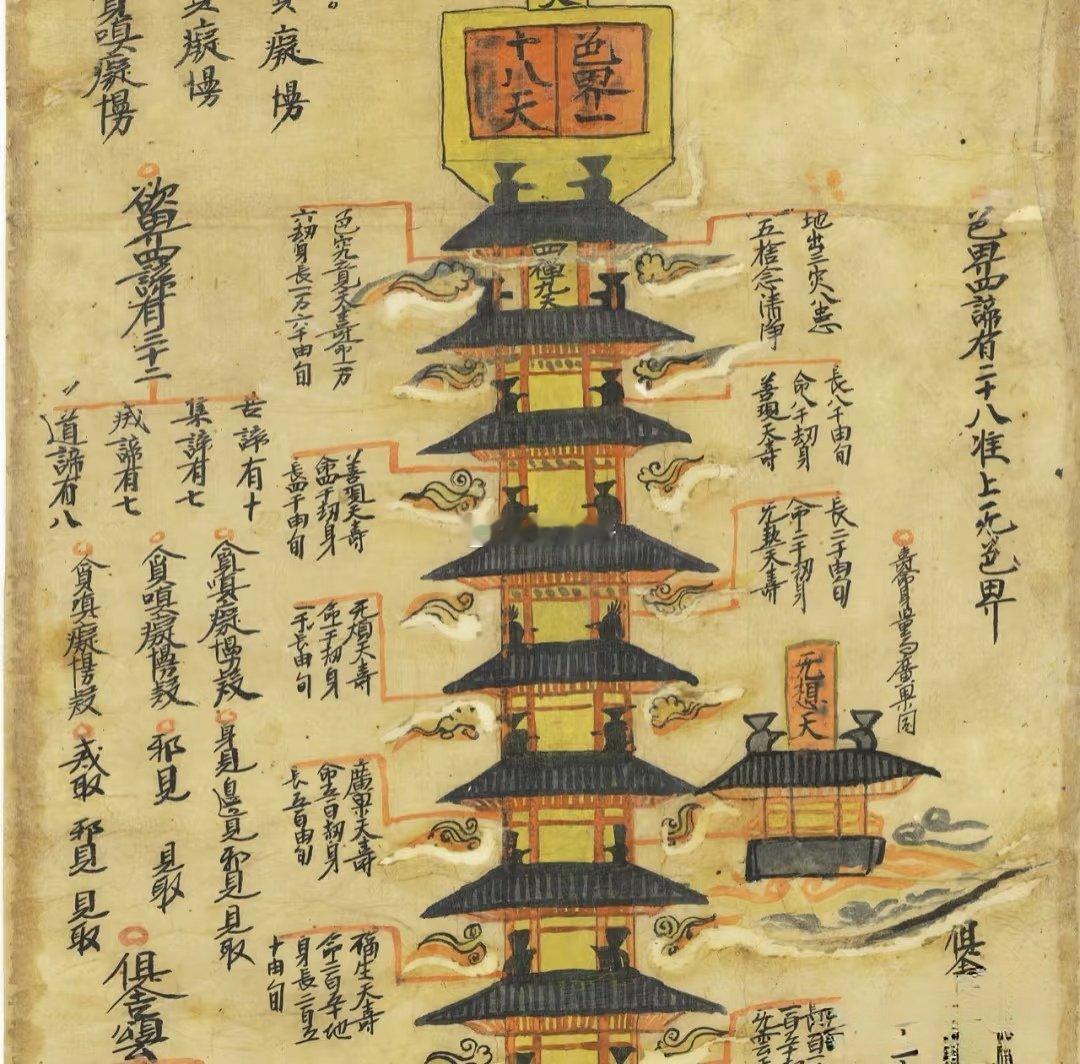 色界一
十八天
色界四諦有二十八准上二无色界
地出三灾八患
五捨念清淨
四禪九天
色究竟天壽命一万
六劫身長一万六千由旬
長八千由旬
命八千劫身
善現天壽
善現天壽
命四千劫身
長四千由旬
長二千由旬
命二千劫身
无熱天壽
无煩天壽
命一千劫身
廣果天壽
命五百劫身
長五百由旬
福生天壽
身長二百五
十由旬
无想天
俱舍
癡慢
癡慢
嗔癡慢
欲界四諦有三十二
苦諦有十
集諦有七
滅諦有七
道諦有八
貪嗔癡慢疑
身見邊見邪見見取
貪嗔癡慢疑
邪見 見取
貪嗔癡慢疑
戒取 邪見 見取
俱舍頌